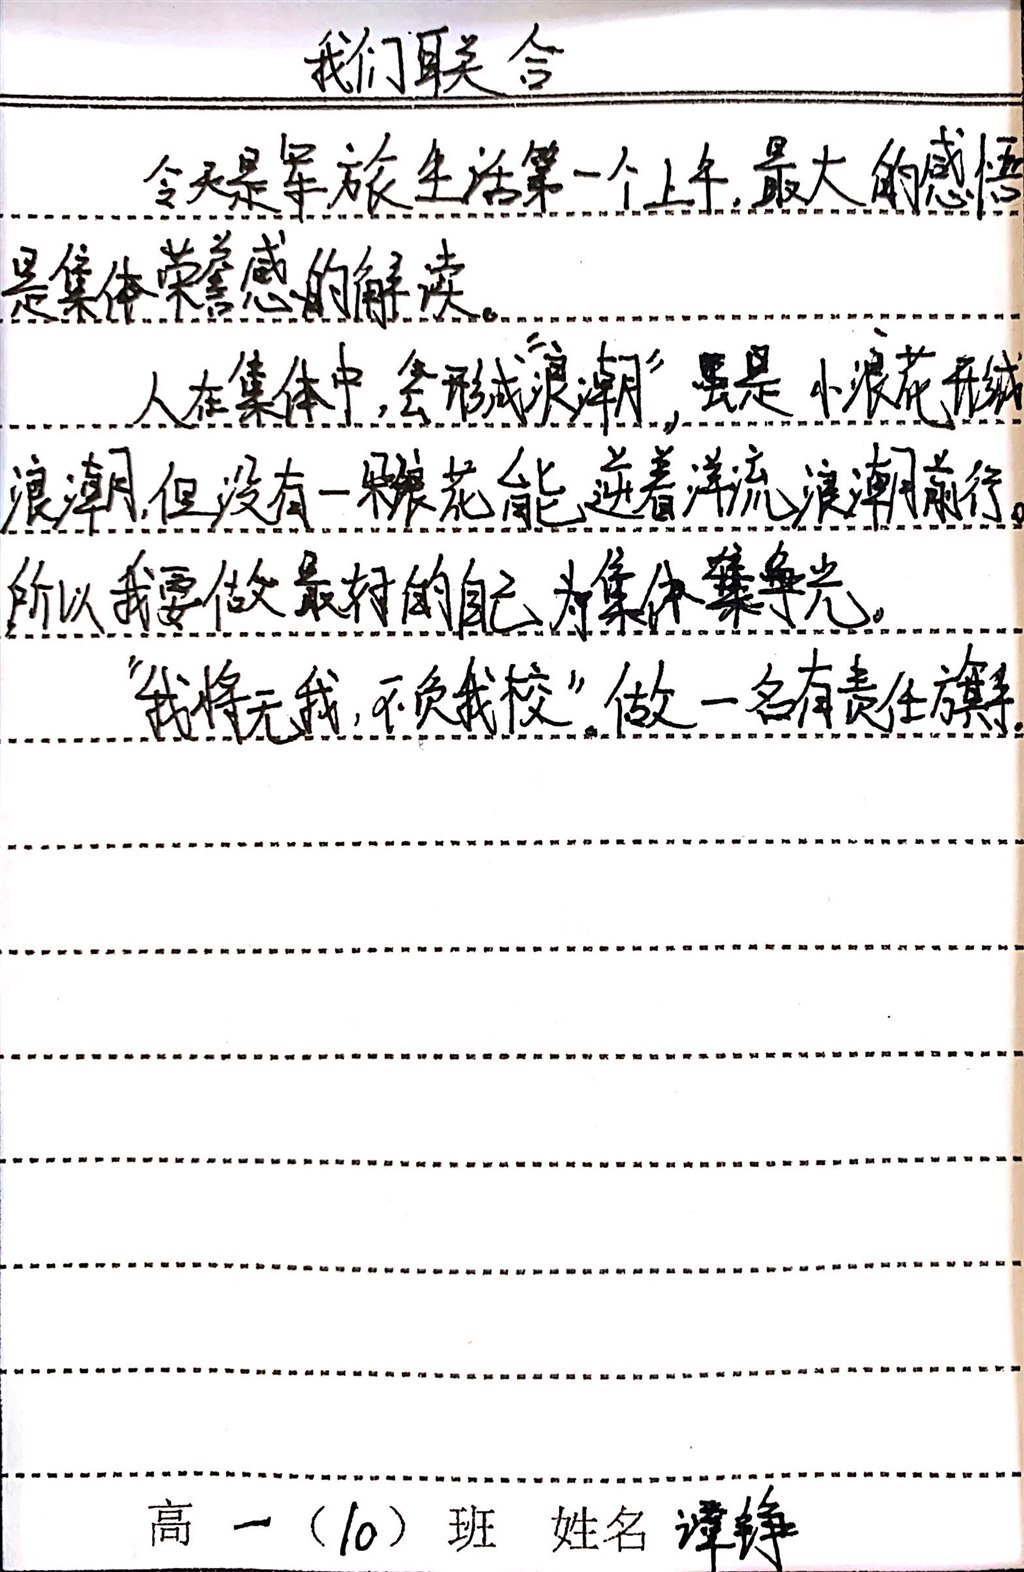 我们联合
今天是军旅生活第一个上午,最大的感悟
是集体荣誉感的解读。
人在集体中,会形成“浪潮”,虽是小浪花形成
浪潮,但没有一朵浪花能逆着洋流浪潮前行。
所以我要做最好的自己,为集体争光。
“我将无我,不负我校”。做一名有责任旗手.
高一(10)班 姓名 谭铮